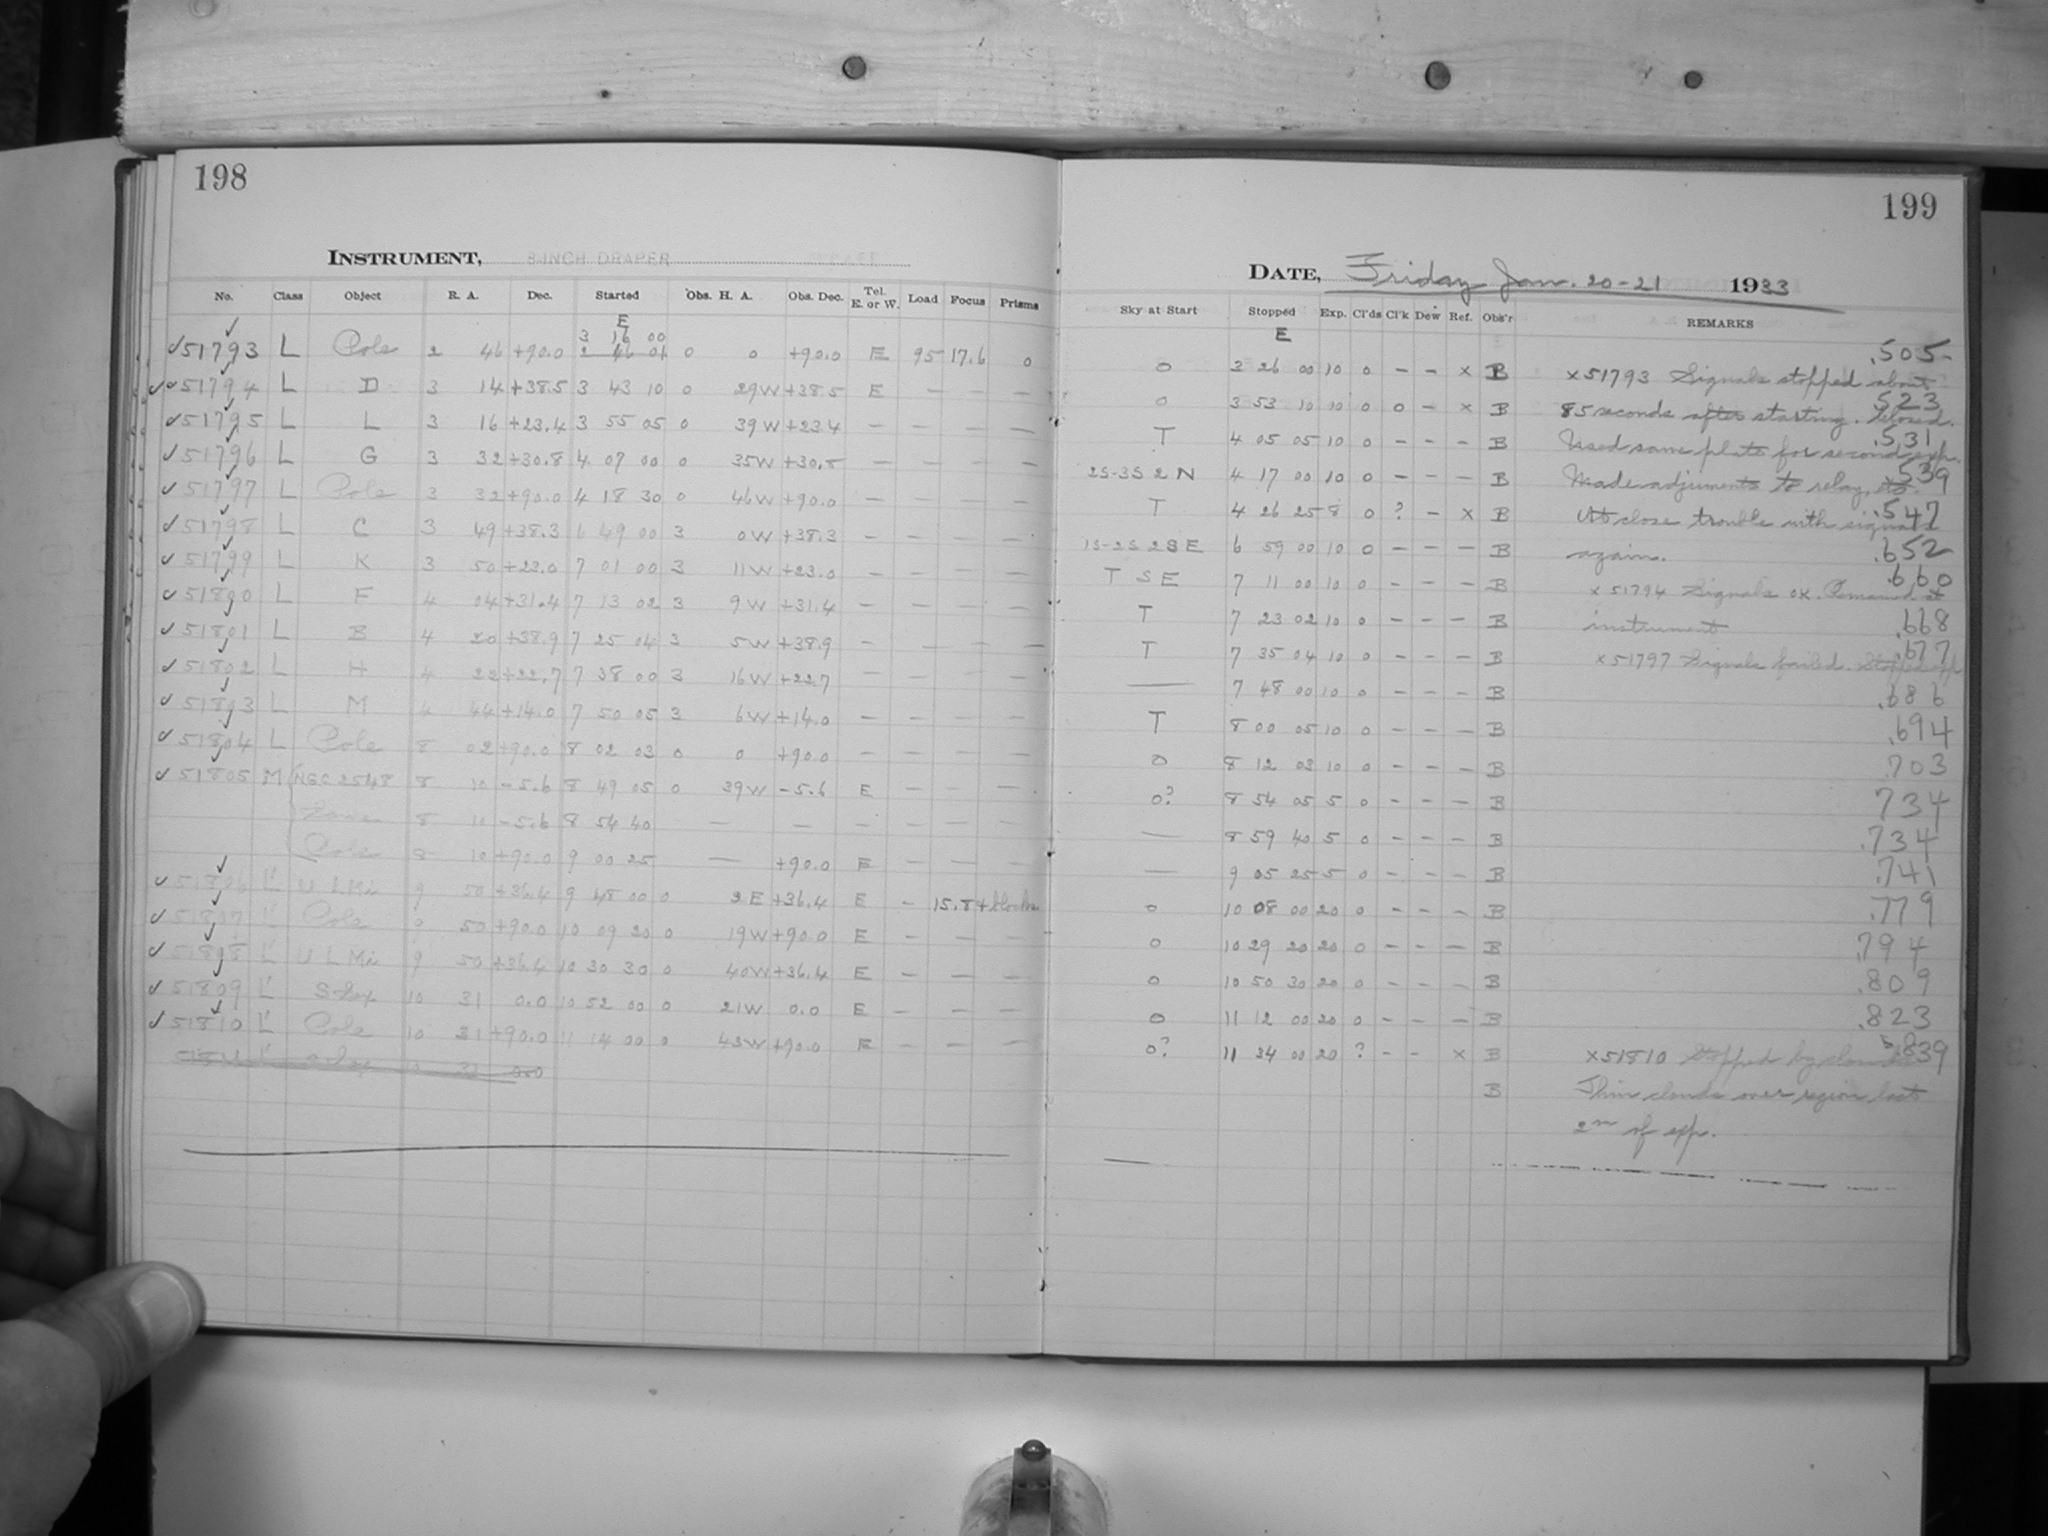 198
INSTRUMENT, 8-INCH DRAPER
No. Class Object R. A. Dec. Started Obs. H. A. Obs. Dec. Tel. E. or W. Load Focus Prisms
E
3 16 00
51793 L Pole 2 46 +90.0 2 46 01 0 0 +90.0 E 95 17.6 0
51794 L D 3 14 +38.5 3 43 10 0 29W +38.5 E — — —
51795 L L 3 16 +23.4 3 55 05 0 39W +23.4 — — — —
51796 L G 3 32 +30.8 4 07 00 0 35W +30.8 — — — —
51797 L Pole 3 32 +90.0 4 18 30 0 46W +90.0 — — — —
51798 L C 3 49 +38.3 6 49 00 3 0W +38.3 — — — —
51799 L K 3 50 +23.0 7 01 00 3 11W +23.0 — — — —
51800 L F 4 04 +31.4 7 13 02 3 9W +31.4 — — — —
51801 L B 4 20 +38.9 7 25 04 3 5W +38.9 — — — —
51802 L H 4 22 +22.7 7 38 00 3 16W +22.7 — — — —
51803 L M 4 44 +14.0 7 50 05 3 6W +14.0 — — — —
51804 L Pole 8 02 +90.0 8 02 03 0 0 +90.0 — — — —
51805 M NGC 2548 8 10 -5.6 8 49 05 0 39W -5.6 E — — —
8 10 -5.6 8 54 40 — — — — — —
Pole 8 10 +90.0 9 00 25 — +90.0 E — — —
51806 L' U L Mi 9 50 +36.4 9 48 00 0 2E +36.4 E — 15.8
51807 L' Pole 9 50 +90.0 10 09 20 0 19W +90.0 E — — —
51808 L' U L Mi 9 50 +36.4 10 30 30 0 40W +36.4 E — — —
51809 L' S Sex 10 31 0.0 10 52 00 0 21W 0.0 E — — —
51810 L' Pole 10 31 +90.0 11 14 00 0 43W +90.0 E — — —
199
DATE, Friday Jan. 20-21 1933
Sky at Start Stopped Exp. Cl'ds Cl'k Dew Ref. Obs'r REMARKS
E
.505
0 3 26 00 10 0 — — x B x51793 Signals stopped about
.523
0 3 53 10 10 0 0 — x B 85 seconds after starting. Closed.
.531
T 4 05 05 10 0 — — — B Used same plate for second exp.
.539
2S-3S 2N 4 17 00 10 0 — — — B Made adjuments to relay, etc.
.547
T 4 26 25 8 0 ? — x B At close trouble with signals
1S-2S 2SE 6 59 00 10 0 — — — B again. .652
.660
T S E 7 11 00 10 0 — — — B x 51794 Signals OK. Remained at
T 7 23 02 10 0 — — — B instrument .668
.677
T 7 35 04 10 0 — — — B x51797 Signals failed. Stopped exp
— 7 48 00 10 0 — — — B .686
T 8 00 05 10 0 — — — B .694
0 8 12 03 10 0 — — — B .703
0? 8 54 05 5 0 — — — B .734
— 8 59 40 5 0 — — — B .734
— 9 05 25 5 0 — — — B .741
0 10 08 00 20 0 — — — B .779
0 10 29 20 20 0 — — — B .794
0 10 50 30 20 0 — — — B .809
0 11 12 00 20 0 — — — B .823
0? 11 34 00 20 ? — — x B x51810 Stopped by clouds .839
B Thin clouds over region last
2m of exp.